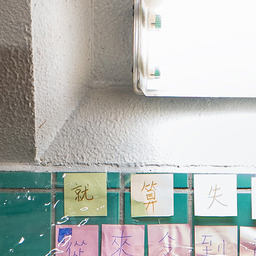 就算失
從來念到